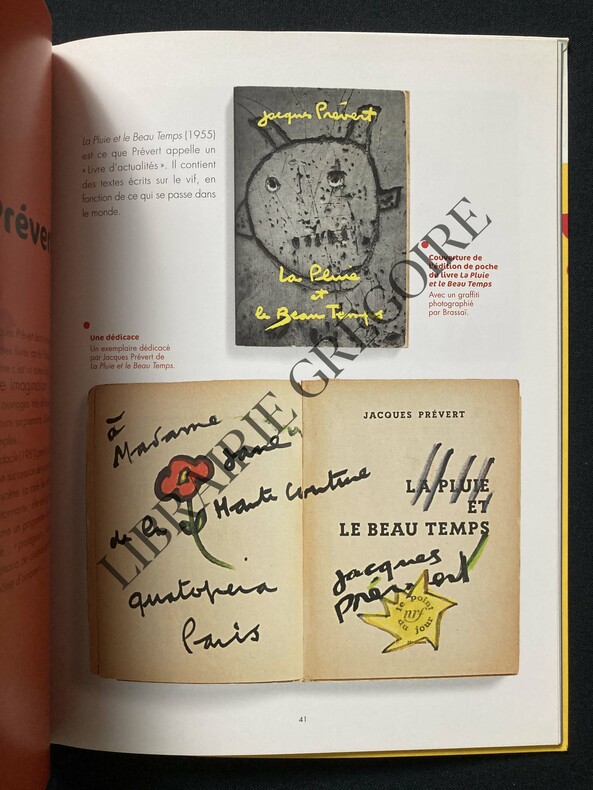 La Pluie et le Beau Temps (1955)
est ce que Prévert appelle un
« Livre d'actualités ». Il contient
des textes écrits sur le vif, en
fonction de ce qui se passe dans
le monde.
Jacques Prévert
La Pluie
et
le Beau Temps
Couverture de
l'édition de poche
du livre La Pluie
et le Beau Temps
Avec un graffiti
photographié
par Brassaï.
Une dédicace
Un exemplaire dédicacé
par Jacques Prévert de
La Pluie et le Beau Temps.
à
Madame
de la Haute Couture
Paris
JACQUES PRÉVERT
LA PLUIE
ET
LE BEAU TEMPS
Jacques
Prévert
le point
nrf
du jour
41
LIBRAIRIE GREGOIRE